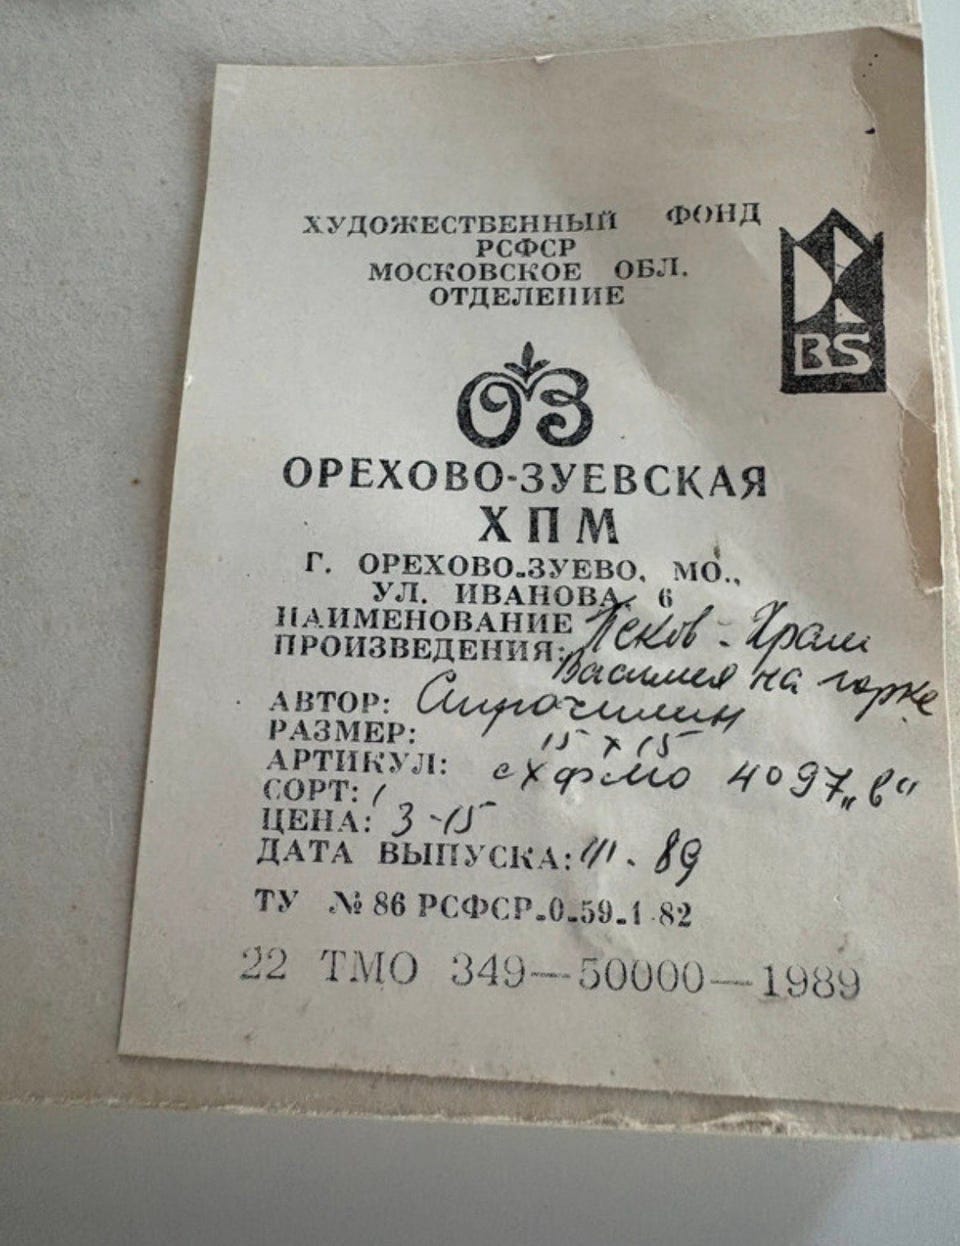 ХУДОЖЕСТВЕННЫЙ ФОНД
РСФСР
МОСКОВСКОЕ ОБЛ.
ОТДЕЛЕНИЕ
BS
ОЗ
ОРЕХОВО-ЗУЕВСКАЯ
ХПМ
Г. ОРЕХОВО-ЗУЕВО, МО.,
УЛ. ИВАНОВА, 6
НАИМЕНОВАНИЕ Псков - Храм
ПРОИЗВЕДЕНИЯ: Василия на горке
АВТОР: Строчилин
РАЗМЕР: 15 х 15
АРТИКУЛ: схфмо 4097 „в“
СОРТ: 1
ЦЕНА: 3-15
ДАТА ВЫПУСКА: III. 89
ТУ № 86 РСФСР-0-59-1-82
22 ТМО 349—50000—1989